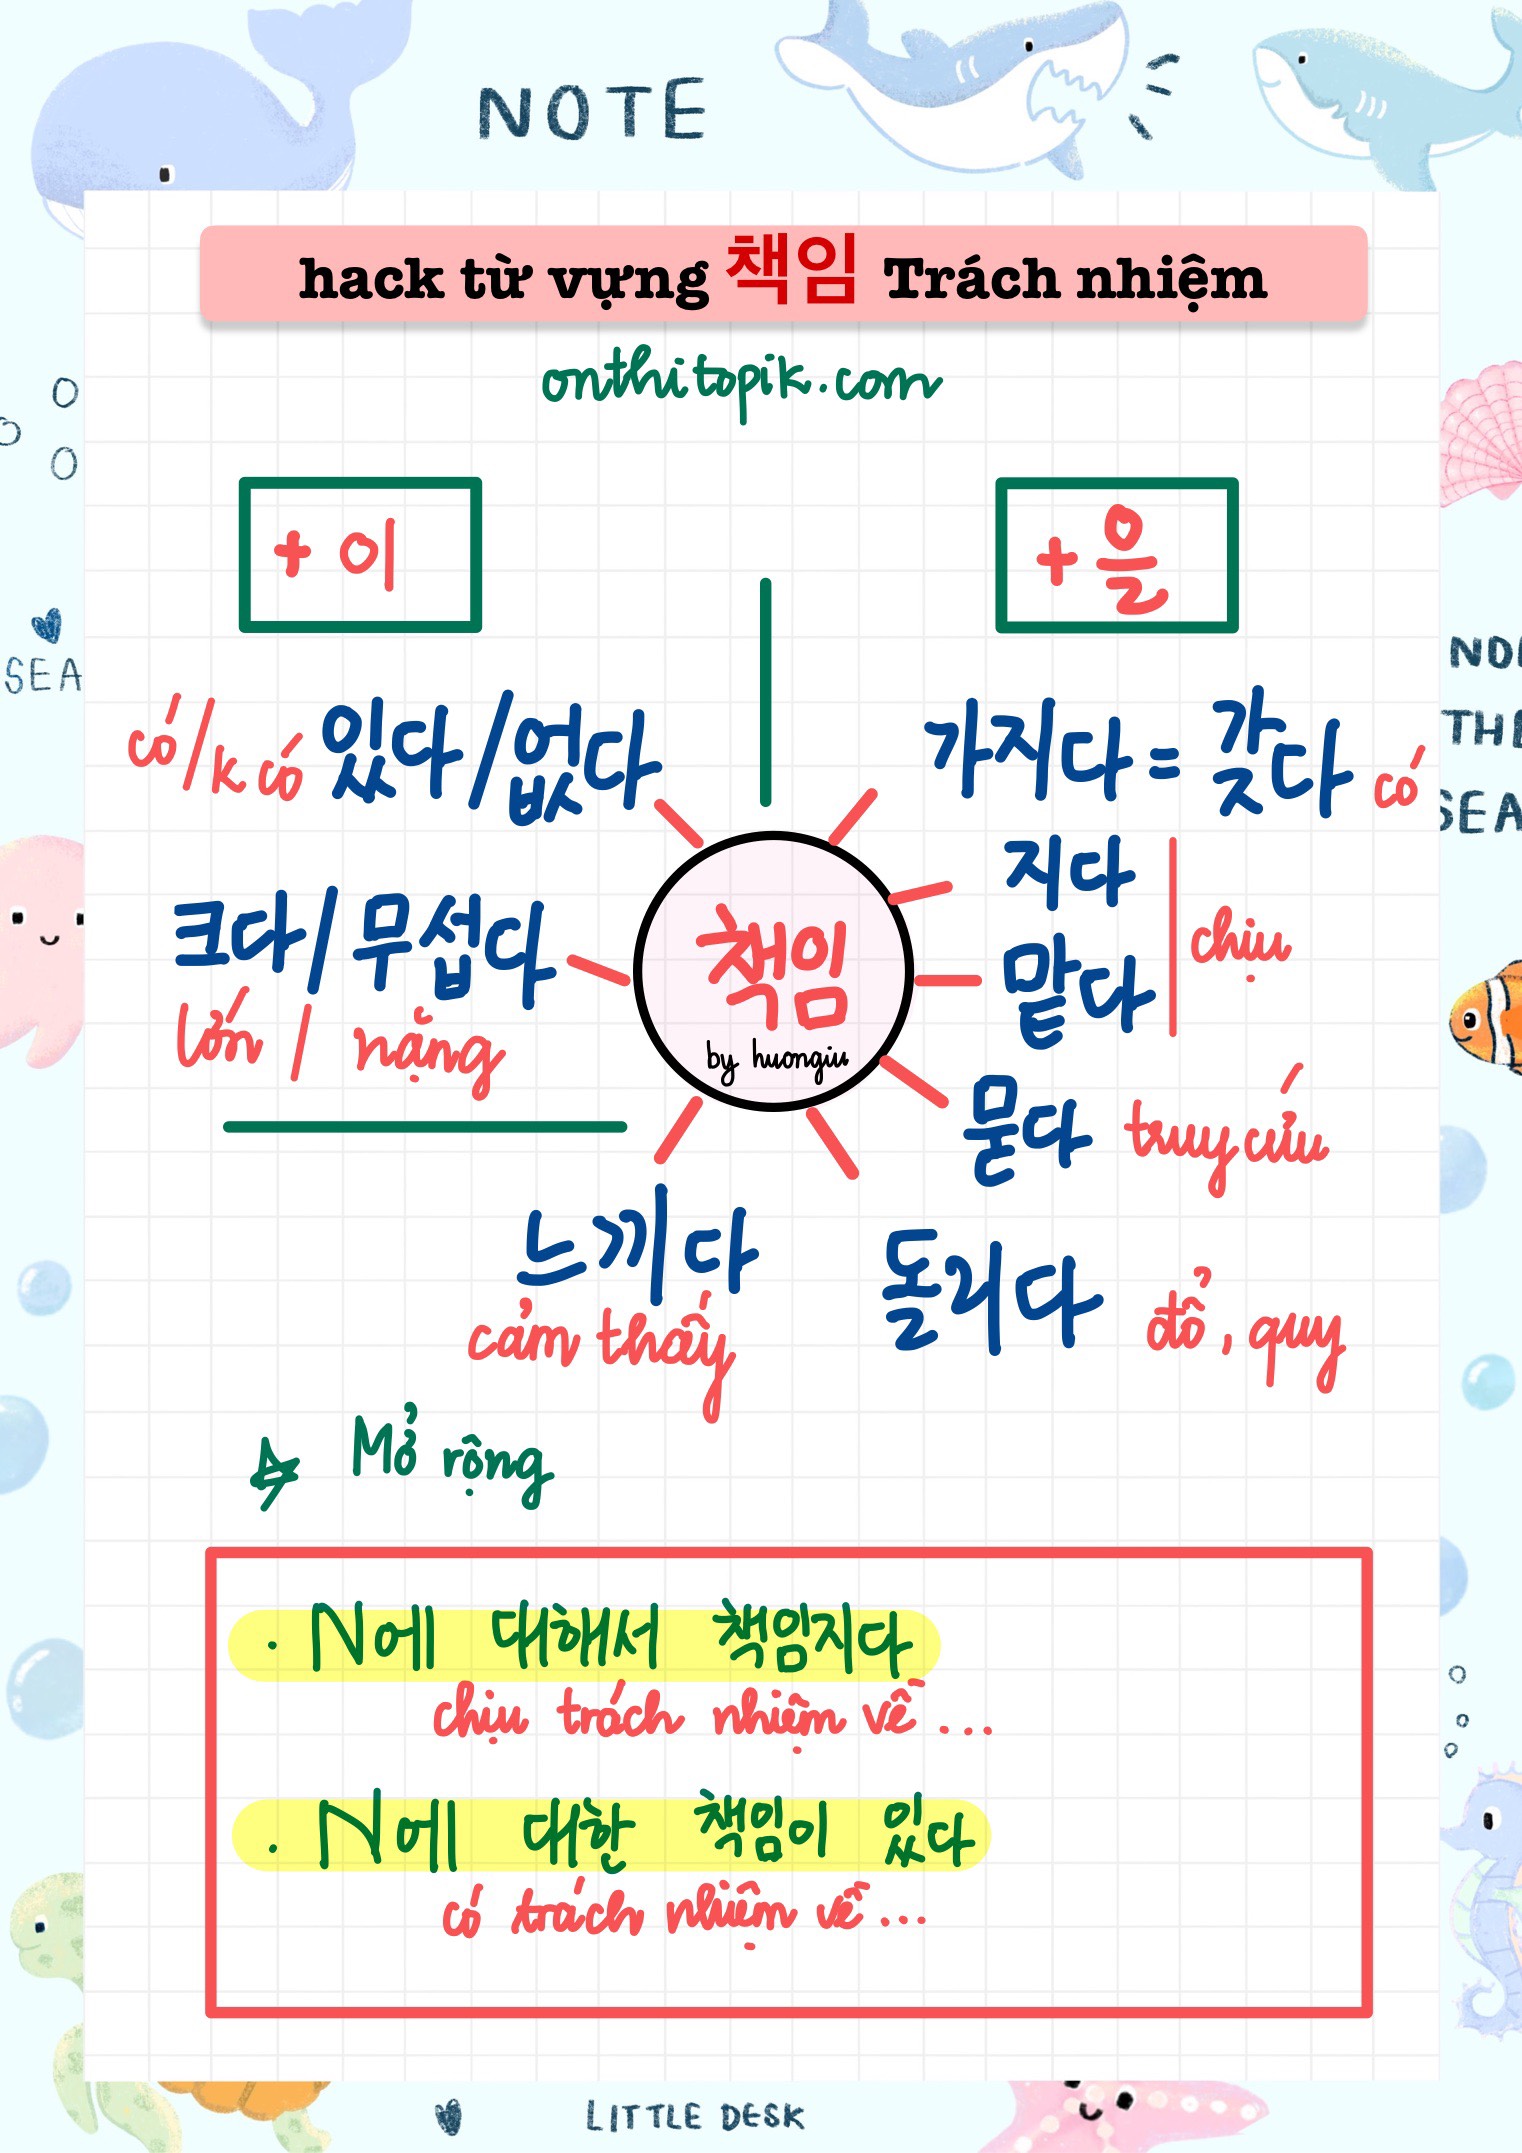 NOTE
hack từ vựng 책임 Trách nhiệm
onthitopik.com
+ 이
+ 을
SEA
có/k có 있다/없다
가지다 = 갖다 có
지다
맡다
chịu
크다/무섭다
lớn / nặng
책임
by huongiu
묻다 truy cứu
느끼다
cảm thấy
돌리다 đổ, quy
Mở rộng
· N에 대해서 책임지다
chịu trách nhiệm về ...
· N에 대한 책임이 있다
có trách nhiệm về ...
LITTLE DESK